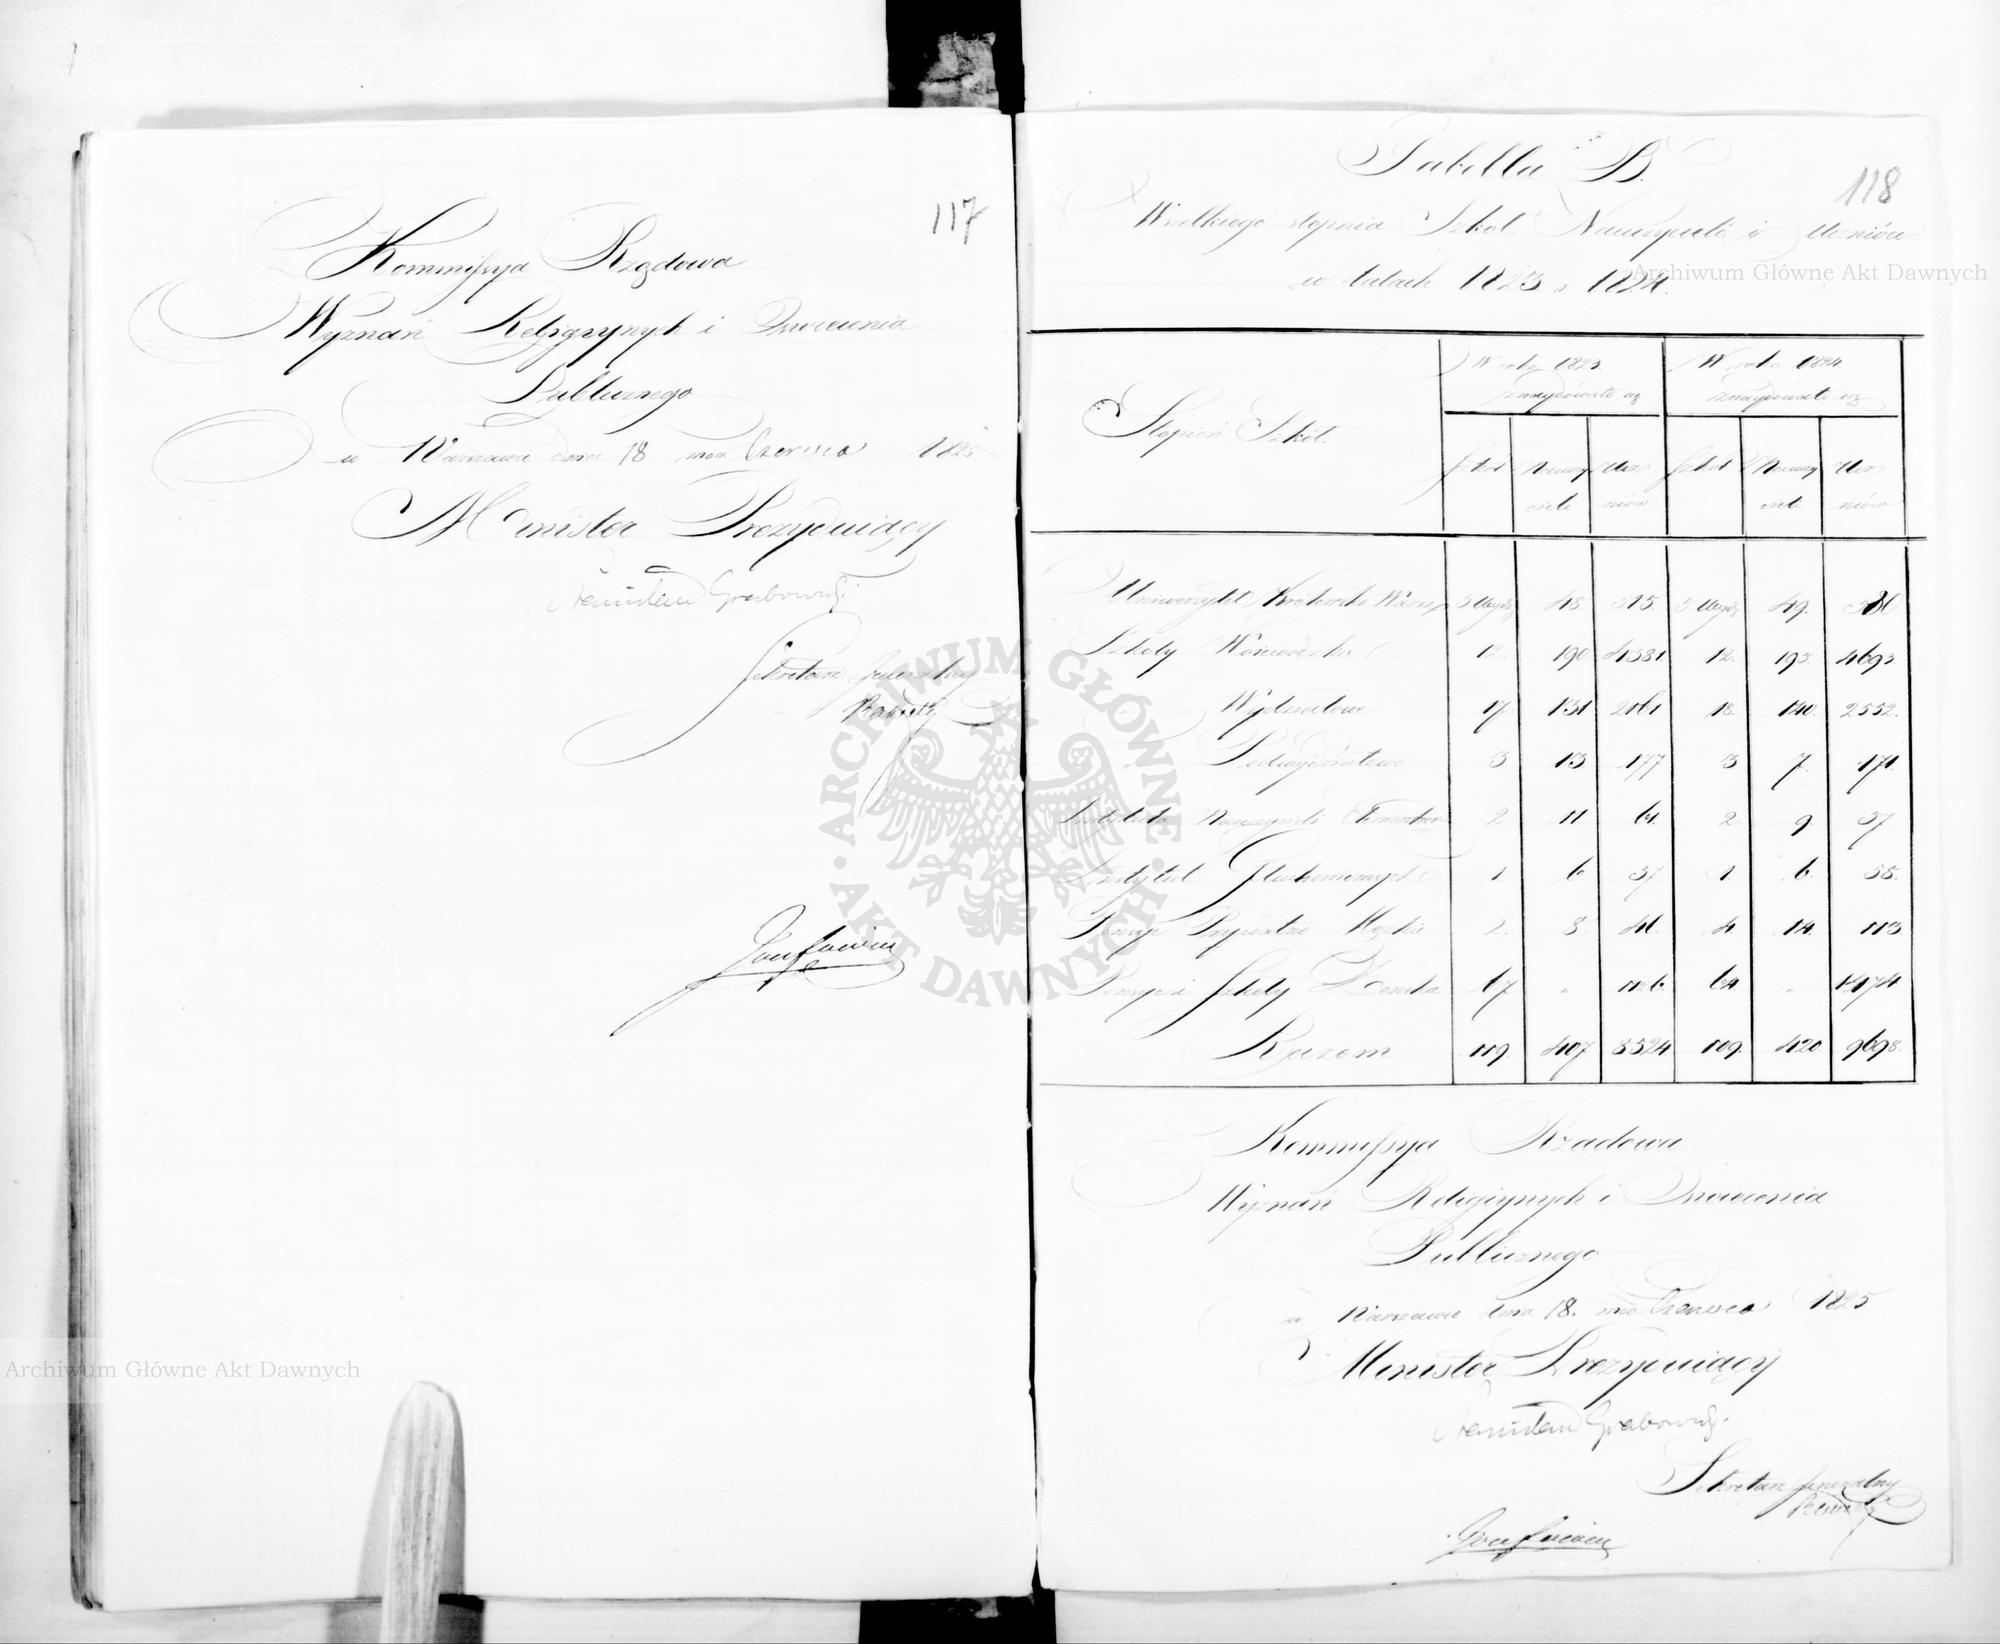 117
Kommissya Rządowa
Wyznań Religiynych i Oswiecenia
Publicznego
w Warszawie dnia 18 mca Czerwca 1825
Minister Prezyduiący
Stanisław Grabowski
Sekretarz Jeneralny
118
Tabella B.
Wszelkiego stopnia Szkół, Nauczycieli i Uczniów
w latach 1823 i 1824.
Stopień Szkół.
W roku 1823 znaydowało się
W roku 1824 znaydowało się
Szkół Nauczycieli Uczniów Szkół Nauczycieli Uczniów
Uniwersytet Królewsko Warsz. 5 Wydz 48. 515. 5 Wydz 49.
Szkoły Woiewodzkie 12. 190 4381. 12. 195. 4693
Wydziałowe 17 131 2161 18. 140. 2552.
Podwydziałowe 3 13 177 3 7. 171.
Instytuta Nauczycieli Elementar. 2 11 61. 2. 9 57
Instytut Głuchoniemych 1 6 57 1 6. 58.
Pensye Prywatne Męzkie 2. 8. 46. 4. 14. 113
Pensye i Szkoły Żeńskie 67 " 1126. 64 " 1474
Razem 119 407 8524 109. 420 9698.
Kommissya Rządowa
Wyznań Religiynych i Oswiecenia
Publicznego
w Warszawie dnia 18. mca Czerwca 1825
Minister Prezyduiący
Stanisław Grabowski
Sekretarz Jeneralny
Archiwum Główne Akt Dawnych
ARCHIWUM GŁÓWNE · AKT DAWNYCH ·
Archiwum Główne Akt Dawnych